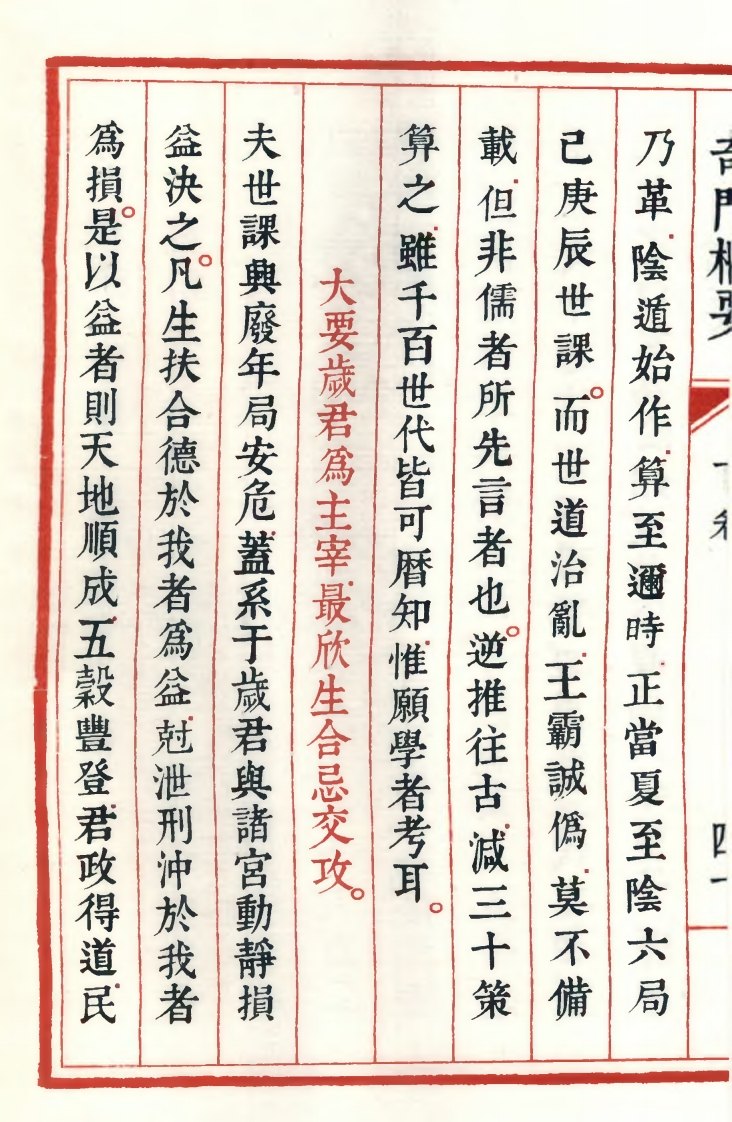 奇門樞要
乃革陰遁始作算至邇時正當夏至陰六局
己庚辰世課而世道治亂王霸誠僞莫不備
載但非儒者所先言者也逆推往古減三十策
算之雖千百世代皆可曆知惟願學者考耳
大要歲君爲主宰最欣生合忌交攻
夫世課興廢年局安危蓋系于歲君與諸宮動靜損
益決之凡生扶合德於我者爲益尅泄刑沖於我者
爲損是以益者則天地順成五穀豐登君政得道民